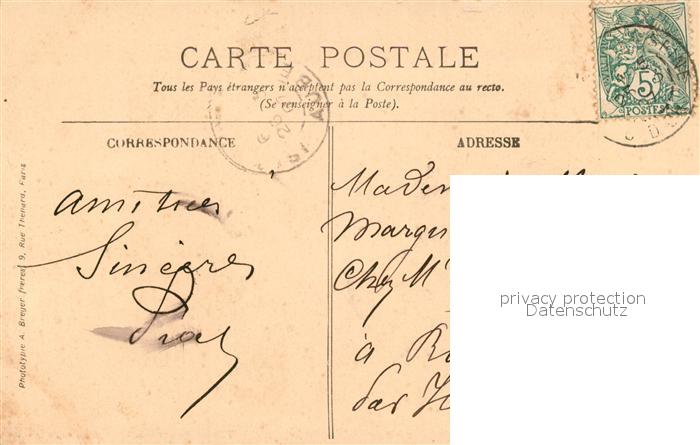 CARTE POSTALE
Tous les Pays étrangers n'acceptent pas la Correspondance au recto.
(Se renseigner à la Poste).
5
POSTES
CORRESPONDANCE
ADRESSE
Amitiées
Sincères
Made
Margu
Chez M
à
par
privacy protection
Datenschutz
Phototypie A. Breger frères, 9, Rue Thenard, Paris